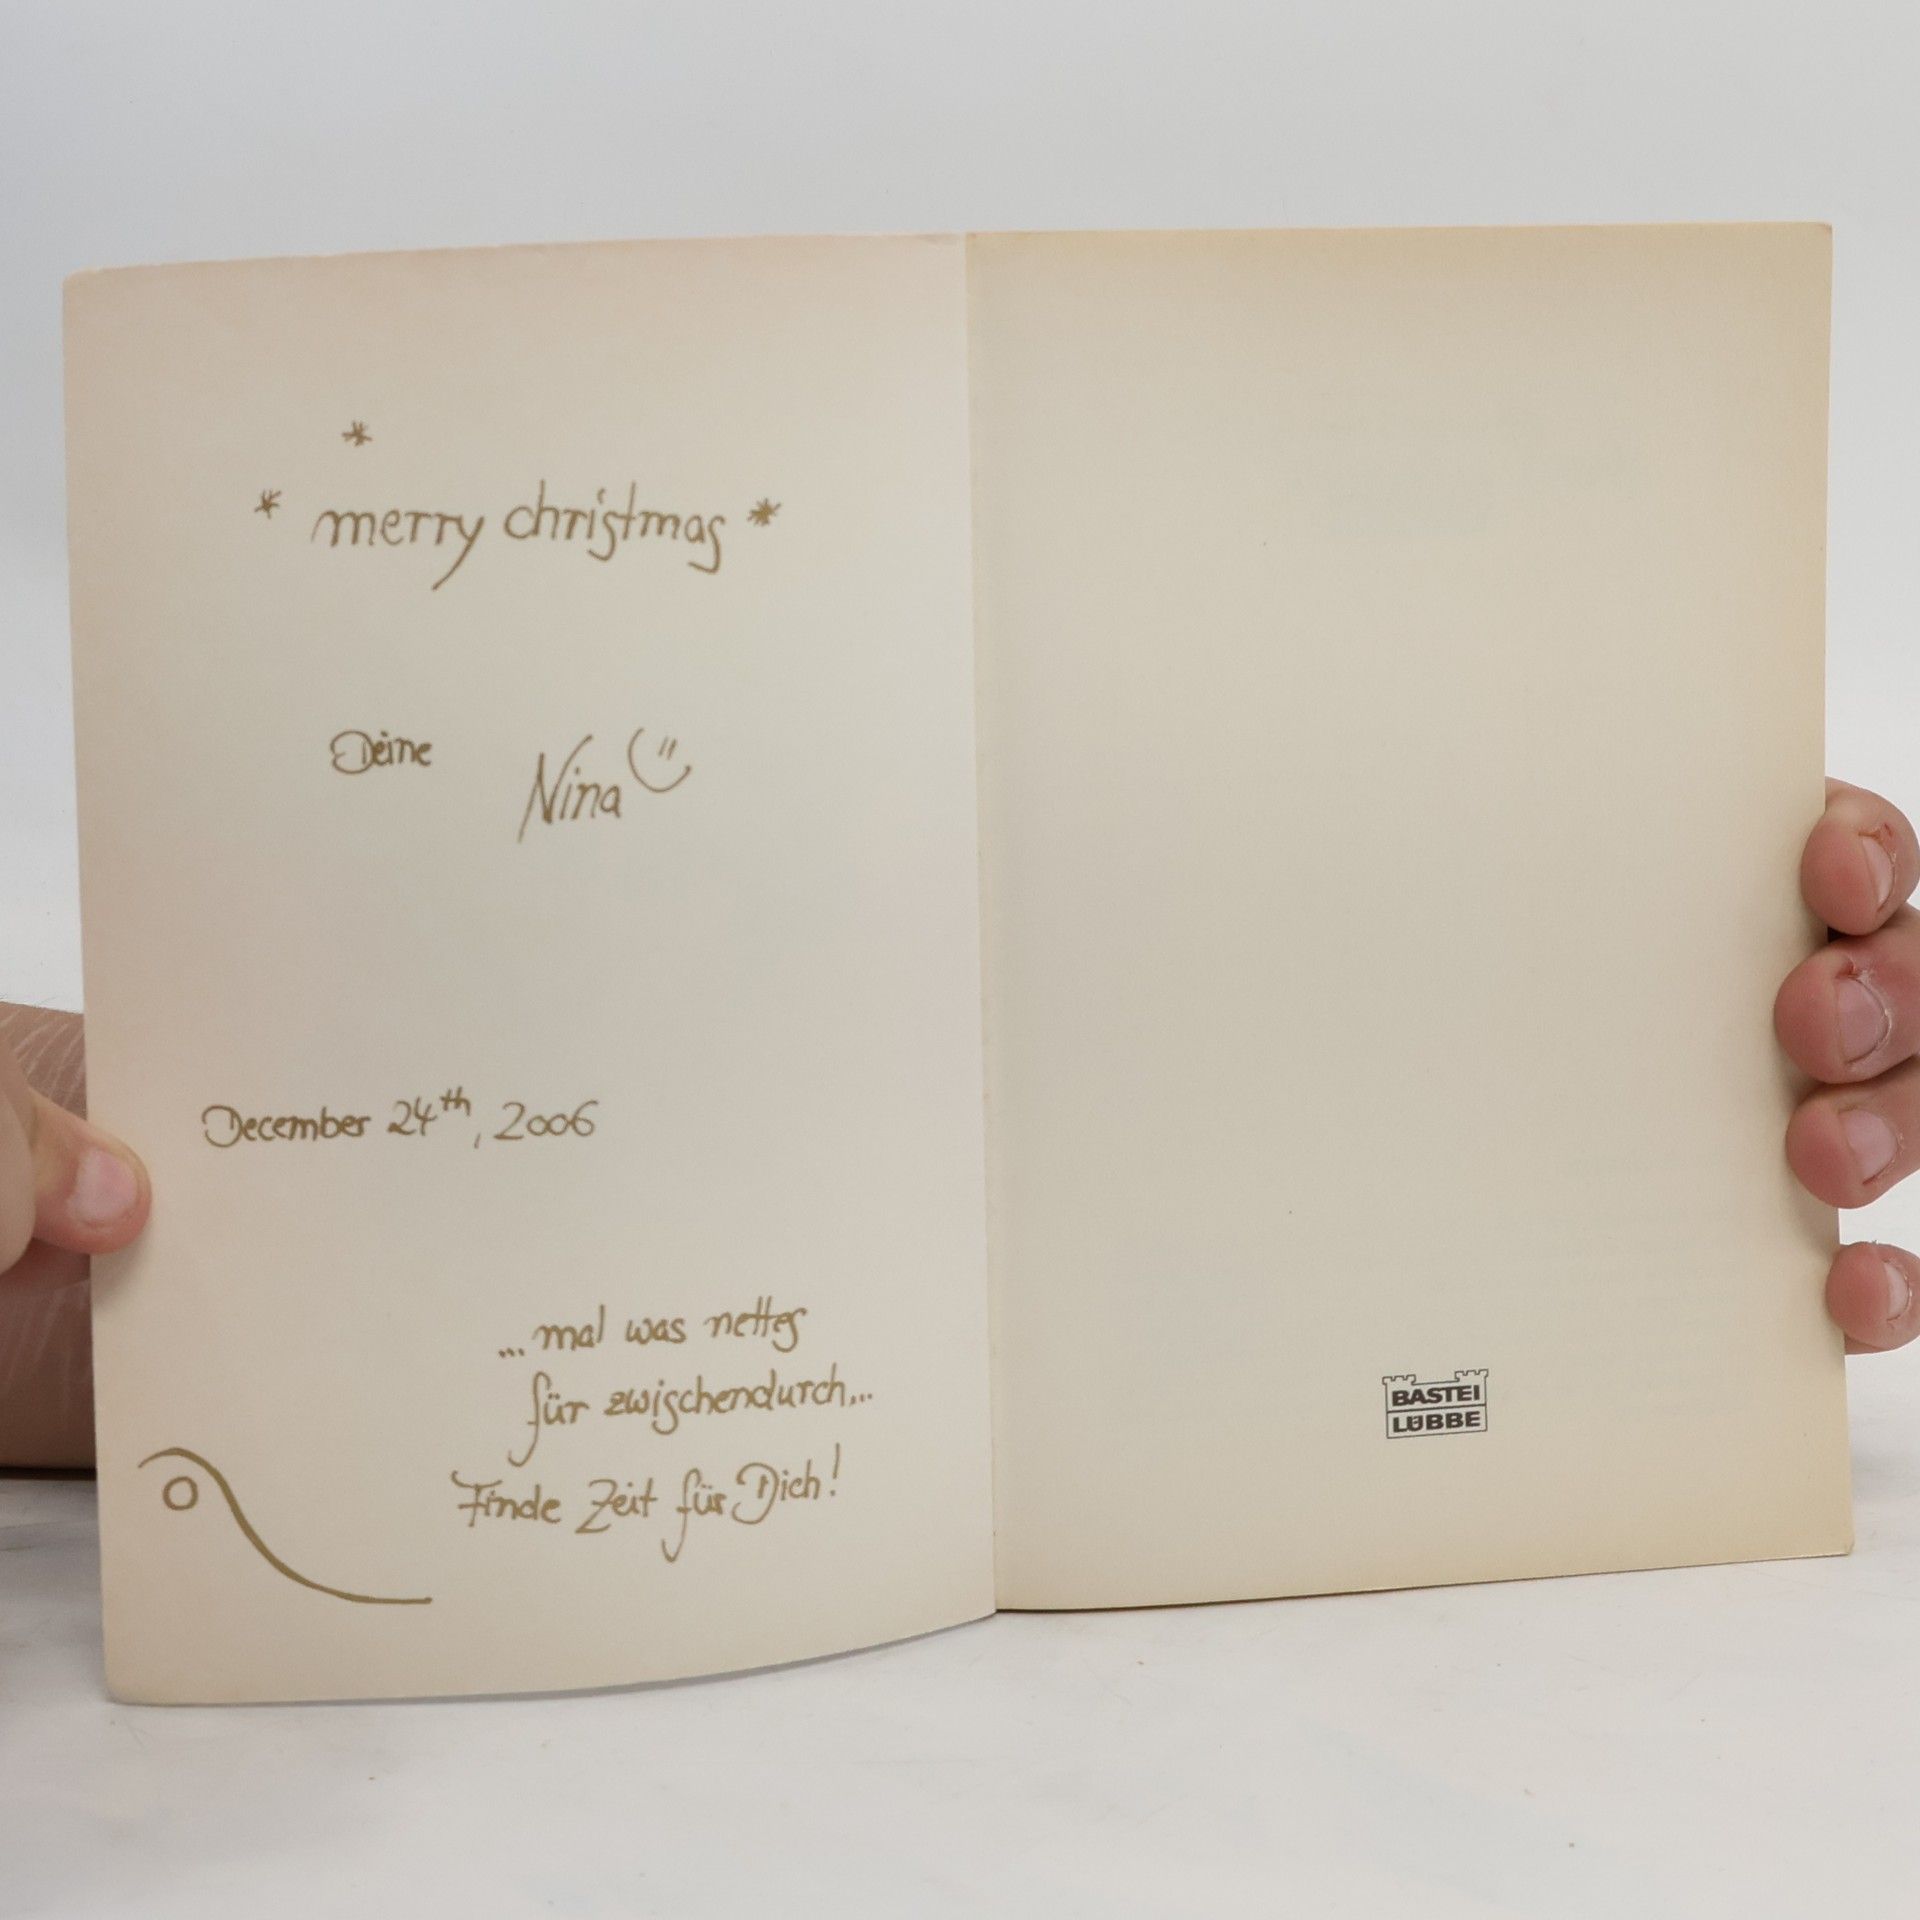 *
* merry christmas *
Deine Nina
December 24th, 2006
...mal was nettes
für zwischendurch...
Finde Zeit für Dich!
BASTEI
LÜBBE